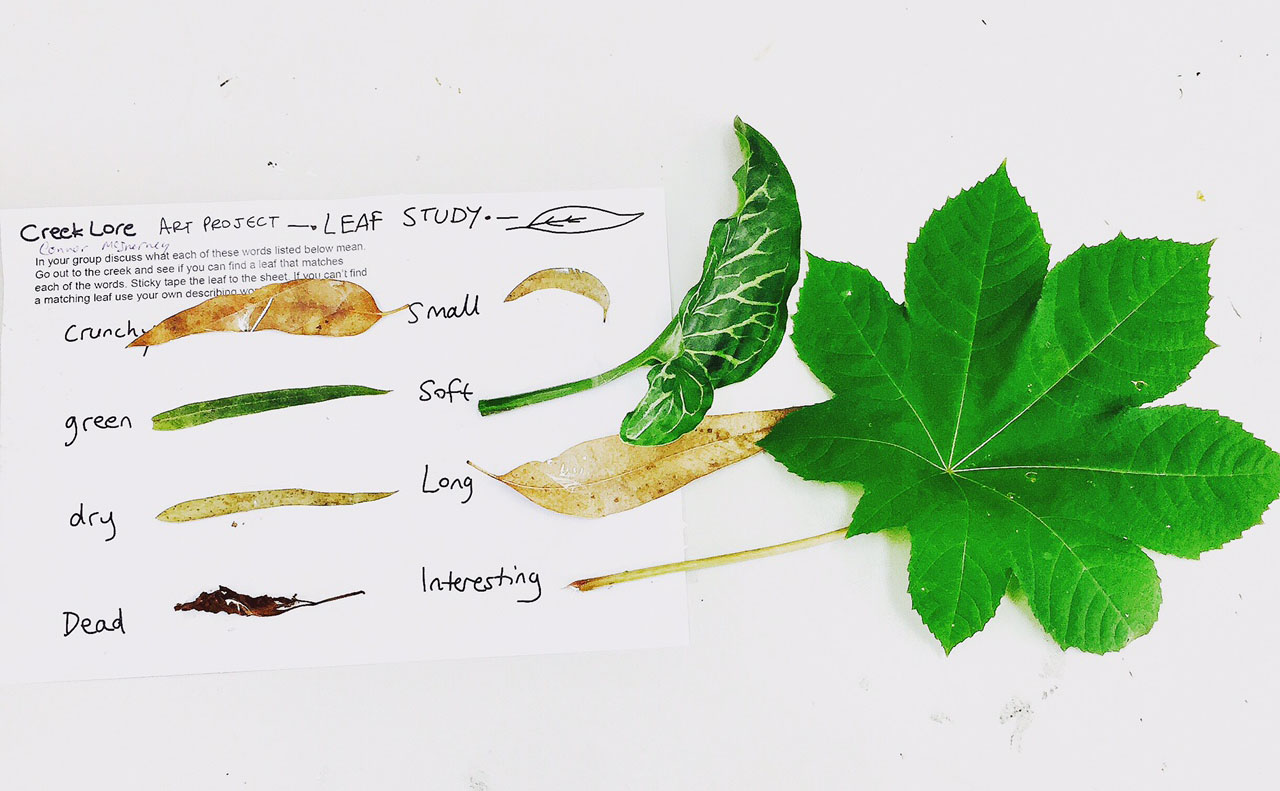 Creek Lore ART PROJECT —. LEAF STUDY. —
Connor McInerney
In your group discuss what each of these words listed below mean.
Go out to the creek and see if you can find a leaf that matches
each of the words. Sticky tape the leaf to the sheet. If you can't find
a matching leaf use your own describing
Crunchy
Small
green
Soft
dry
Long
Dead
Interesting